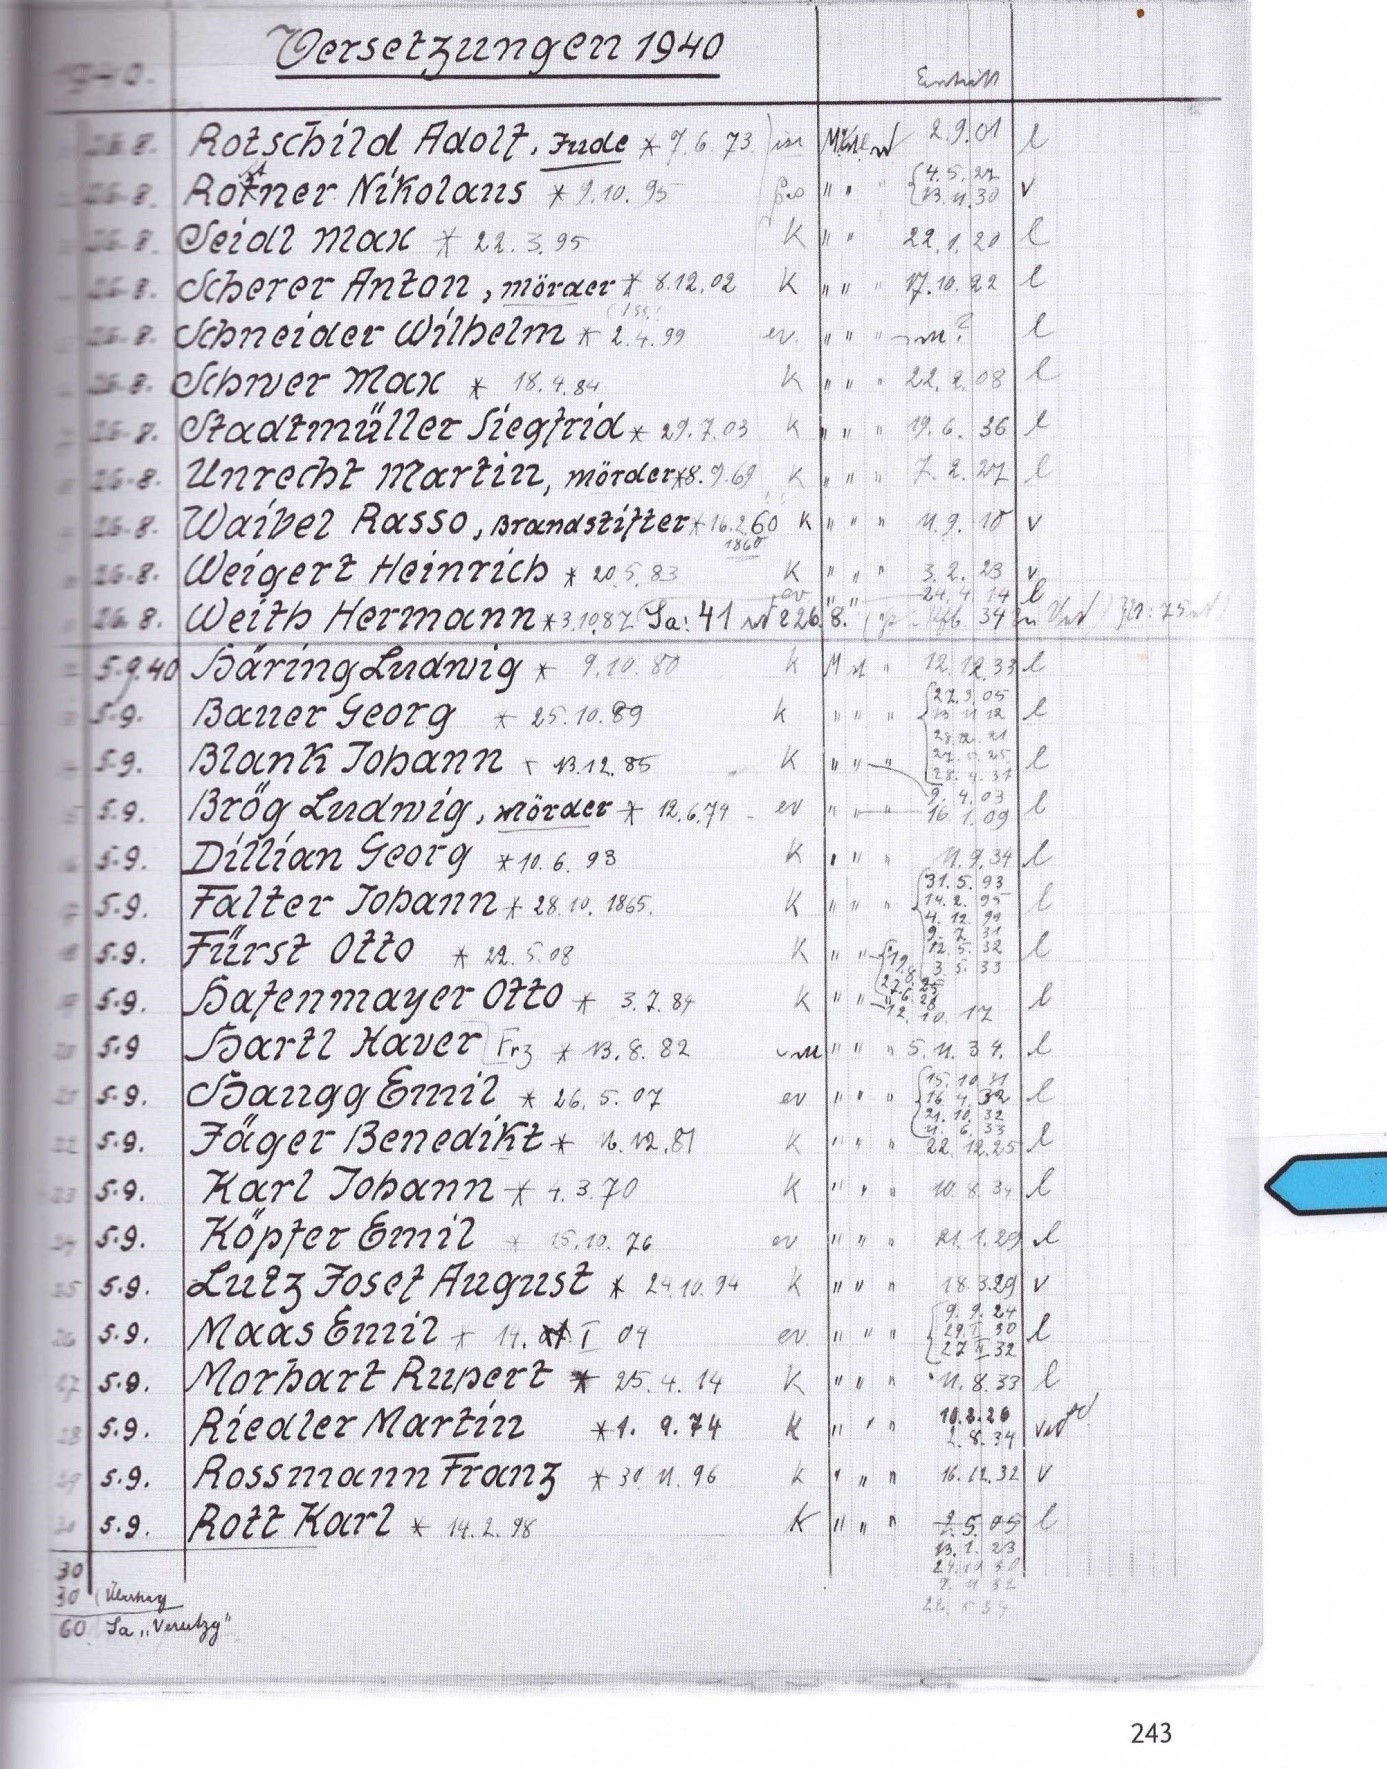 Versetzungen 1940
1940. Eintritt
26.8. Rotschild Adolf, Jude * 7.6.73 isr 2.9.01 l
26.8. Rottner Nikolaus * 9.10.95 " " " 4.5.27 v
23.11.30
26.8. Seidl Max * 22.3.95 K " " 22.1.20 l
26.8. Scherer Anton, Mörder * 8.12.02 K " " " 17.10.22 l
26.8. Schneider Wilhelm * 2.4.99 ev. " " " ? l
26.8. Schwer Max * 18.4.84 K " " " 22.2.08 l
26.8. Stadtmüller Siegfrid * 29.7.03 K " " " 19.6.36 l
26.8. Unrecht Martin, Mörder * 8.9.69 K " " " 7.2.27 l
26.8. Waibel Rasso, Brandstifter * 16.2.60 K " " " 11.9.10 v
1860
26.8. Weigert Heinrich * 20.5.83 K " " " 3.2.23 v
ev " " 24.4.14 l
26.8. Weith Hermann * 3.10.87 Sa: 41 26.8. 34
5.9.40 Häring Ludwig * 9.10.80 K M " 12.12.33 l
5.9. Bauer Georg * 25.10.89 K " " " 27.3.05 l
13.11.12
28.12.21
27.5.25
28.4.31
5.9. Blank Johann * 13.12.85 K " " " l
9.4.03
5.9. Brög Ludwig, Mörder * 12.6.74 ev " " 16.1.09 l
5.9. Dillian Georg * 10.6.93 K " " " 11.9.34 l
5.9. Falter Johann * 28.10.1865. K " " " 31.5.93 l
14.2.95
4.12.99
9.7.31
12.5.32
3.5.33
5.9. Fürst Otto * 22.5.08 K " " l
5.9. Hafenmayer Otto * 3.7.84 K " " 12.10.17 l
5.9 Hartl Xaver Frz * 13.8.82 " " " 5.11.34. l
5.9. Haugg Emil * 26.5.07 ev " " " 15.10.31 l
16.4.32
21.10.32
11.6.33
5.9. Jäger Benedikt * 16.12.81 K " " " 22.12.25 l
5.9. Karl Johann * 4.3.70 K " " " 10.8.34 l
5.9. Köpfer Emil * 15.10.76 ev " " " 21.1.29 l
5.9. Lutz Josef August * 24.10.94 K " " " 18.3.29 v
5.9. Maas Emil * 14. I 04 ev. " " " 9.9.24 l
29.I 30
27 II 32
5.9. Morhart Rupert * 25.4.14 K " " " 11.8.33 l
5.9. Riedler Martin * 1.9.74 K " " " 10.3.26
2.8.34
5.9. Rossmann Franz * 30.11.96 K " " " 16.12.32 v
5.9. Rott Karl * 14.2.98 K " " " 2.5.05 l
13.1.23
24.10.30
9.11.32
30
30 (Übertrag
60 Sa „Versetzg"
243